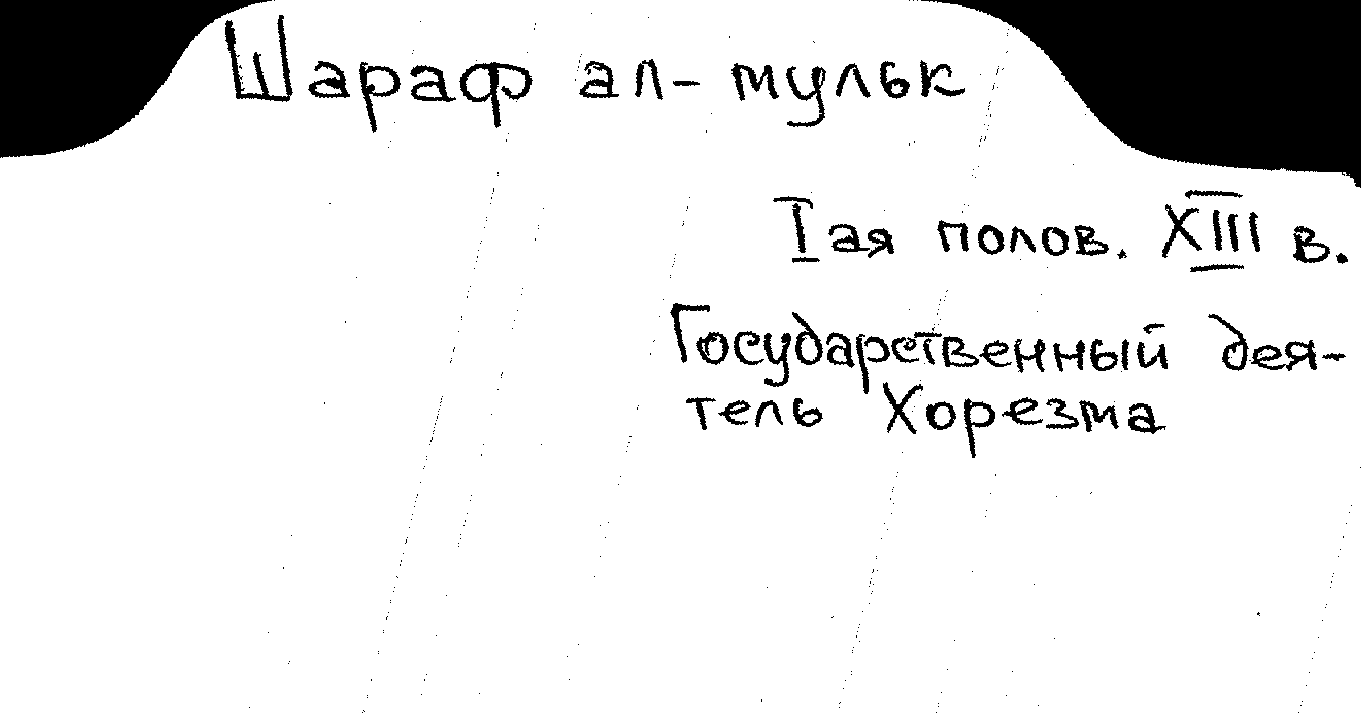 Шараф ал-мульк
Iая полов. XIII в.
Государственный дея-
тель Хорезма